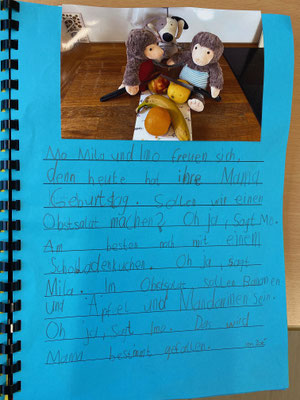 Mo Mila und Imo freuen sich,
denn heute hat ihre Mama
Geburtstag. Sollen wir einen
Obstsalat machen? Oh ja, sagt Mo.
Am besten noch mit einem
Schokoladenkuchen. Oh ja, sagt
Mila. Im Obstsalat sollen Bananen
und Äpfel und Mandarinen sein.
Oh ja, sagt Imo. Das wird
Mama bestimmt gefallen.